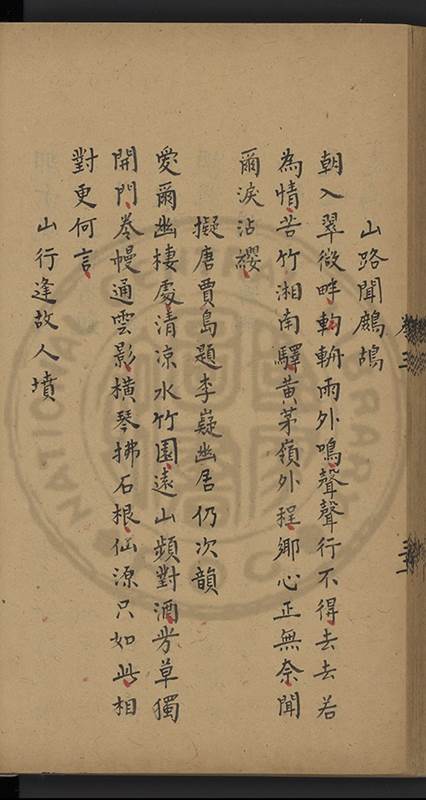 山路聞鷓鴣
朝入翠微畔鉤輈雨外鳴聲聲行不得去去若
為情苦竹湘南驛黃茅嶺外程鄉心正無奈聞
爾淚沾纓
擬唐賈島題李嶷幽居仍次韻
愛爾幽棲處清涼水竹園遠山頻對酒芳草獨
開門卷幔通雲影橫琴拂石根仙源只如此相
對更何言
山行逢故人墳